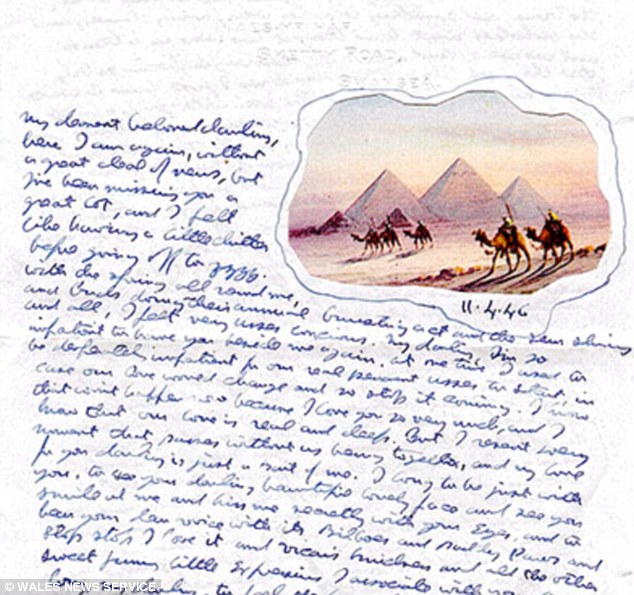 my dearest beloved darling,
here I am again, without
a great deal of news, but
I've been missing you a
great lot, and I felt
like having a little chitter
before going off to zzzz.
11.4.46
with the spring all round me,
and buds doing their annual bursting act and the sun shining
and all, I feel very usses concious. My darling, I'm so
impatient to have you beside me again. At one time I used to
be definitely impatient for our real permanent usses to start, in
case our love would change and so stop it coming. I know
that won't happen now because I love you so very much, and I
know that our love is real and deep. But I resent every
moment that passes without us being together, and my love
for you darling is just a part of me. I long to be just with
you, to see your darling beautiful lovely face and see you
smile at me and kiss me secretly with your eyes, and to
hear your dear voice with its and Paws and
stop stop I love it and and all the other
sweet funny little expressions I associate with
© WALES NEWS SERVICE